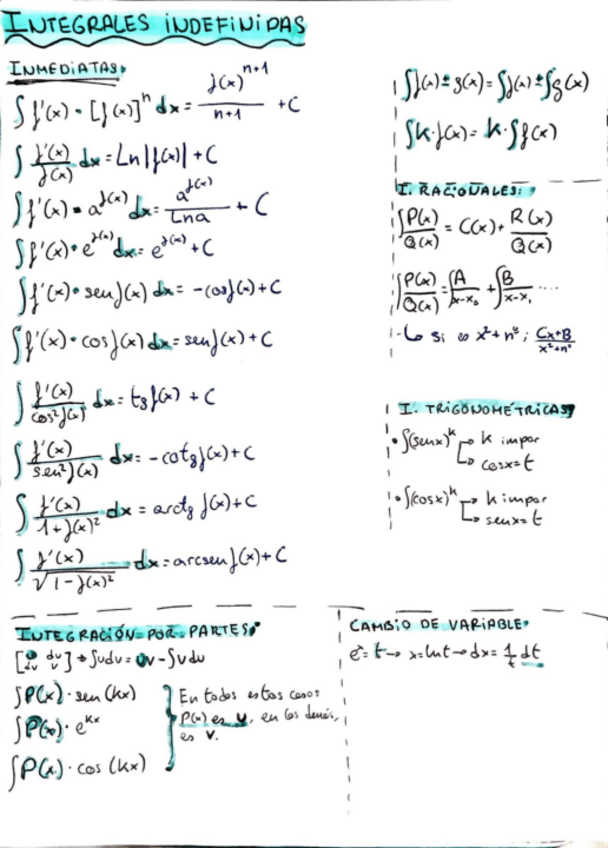 INTEGRALES INDEFINIDAS
INMEDIATAS:
∫ f'(x) · [f(x)]^n dx = f(x)^(n+1) / (n+1) + C
∫ f'(x) / f(x) dx = Ln |f(x)| + C
∫ f'(x) · a^f(x) dx = a^f(x) / Ln a + C
∫ f'(x) · e^f(x) dx = e^f(x) + C
∫ f'(x) · sen f(x) dx = -cos f(x) + C
∫ f'(x) · cos f(x) dx = sen f(x) + C
∫ f'(x) / cos² f(x) dx = tg f(x) + C
∫ f'(x) / sen² f(x) dx = -cotg f(x) + C
∫ f'(x) / 1 + f(x)² dx = arctg f(x) + C
∫ f'(x) / √(1 - f(x)²) dx = arcsen f(x) + C
∫ f(x) ± g(x) = ∫ f(x) ± ∫ g(x)
∫ k · f(x) = k · ∫ f(x)
I. RACIONALES:
∫ P(x) / Q(x) = C(x) + R(x) / Q(x)
∫ P(x) / Q(x) = ∫ A / x-x₀ + ∫ B / x-x₁ ....
I. TRIGONOMÉTRICAS
• ∫ (senx)^k → k impar
↳ cosx = t
• ∫ (cosx)^k → k impar
↳ senx = t
INTEGRACIÓN POR PARTES:
∫ u dv = uv - ∫ v du
∫ P(x) · sen (kx)
∫ P(x) · e^kx
∫ P(x) · cos (kx)
En todos estos casos
P(x) es u, en los demás,
es v.
CAMBIO DE VARIABLE:
e^x = t → x = lnt → dx = 1/t dt